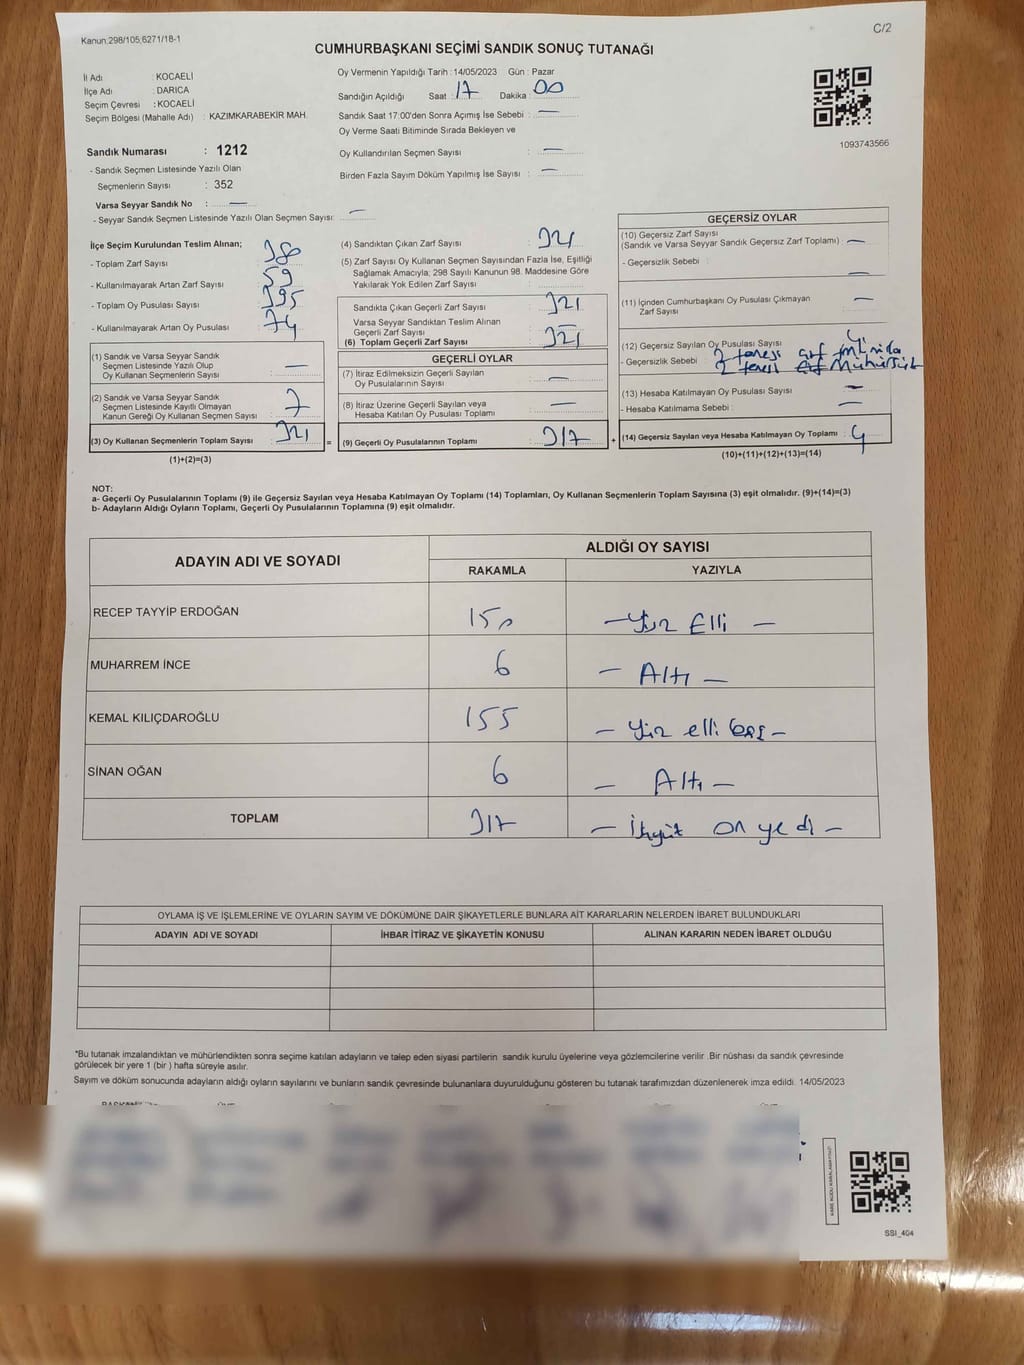 Kanun:298/105,6271/18-1
C/2
CUMHURBAŞKANI SEÇİMİ SANDIK SONUÇ TUTANAĞI
İl Adı : KOCAELİ
İlçe Adı : DARICA
Seçim Çevresi : KOCAELİ
Seçim Bölgesi (Mahalle Adı) : KAZIMKARABEKİR MAH.
Oy Vermenin Yapıldığı Tarih : 14/05/2023 Gün : Pazar
Sandığın Açıldığı Saat : 17 Dakika : 00
Sandık Saat 17:00'den Sonra Açımış İse Sebebi : —
Oy Verme Saati Bitiminde Sırada Bekleyen ve
Oy Kullandırılan Seçmen Sayısı : —
Birden Fazla Sayım Döküm Yapılmış İse Sayısı : —
1093743566
Sandık Numarası : 1212
- Sandık Seçmen Listesinde Yazılı Olan
Seçmenlerin Sayısı : 352
Varsa Seyyar Sandık No : —
- Seyyar Sandık Seçmen Listesinde Yazılı Olan Seçmen Sayısı: —
İlçe Seçim Kurulundan Teslim Alınan;
- Toplam Zarf Sayısı 380
- Kullanılmayarak Artan Zarf Sayısı 59
- Toplam Oy Pusulası Sayısı 395
- Kullanılmayarak Artan Oy Pusulası 74
(1) Sandık ve Varsa Seyyar Sandık
Seçmen Listesinde Yazılı Olup
Oy Kullanan Seçmenlerin Sayısı —
(2) Sandık ve Varsa Seyyar Sandık
Seçmen Listesinde Kayıtlı Olmayan
Kanun Gereği Oy Kullanan Seçmen Sayısı 7
(3) Oy Kullanan Seçmenlerin Toplam Sayısı 321 =
(1)+(2)=(3)
(4) Sandıktan Çıkan Zarf Sayısı : 321
(5) Zarf Sayısı Oy Kullanan Seçmen Sayısından Fazla İse, Eşitliği
Sağlamak Amacıyla; 298 Sayılı Kanunun 98. Maddesine Göre
Yakılarak Yok Edilen Zarf Sayısı :
Sandıkta Çıkan Geçerli Zarf Sayısı : 321
Varsa Seyyar Sandıktan Teslim Alınan
Geçerli Zarf Sayısı : —
(6) Toplam Geçerli Zarf Sayısı : 321
GEÇERLİ OYLAR
(7) İtiraz Edilmeksizin Geçerli Sayılan
Oy Pusulalarının Sayısı : —
(8) İtiraz Üzerine Geçerli Sayılan veya
Hesaba Katılan Oy Pusulası Toplamı : —
(9) Geçerli Oy Pusulalarının Toplamı : 317 +
GEÇERSİZ OYLAR
(10) Geçersiz Zarf Sayısı
(Sandık ve Varsa Seyyar Sandık Geçersiz Zarf Toplamı) : —
- Geçersizlik Sebebi : —
(11) İçinden Cumhurbaşkanı Oy Pusulası Çıkmayan
Zarf Sayısı : —
(12) Geçersiz Sayılan Oy Pusulası Sayısı : 4
- Geçersizlik Sebebi : 2 tanesi
2 tanesi
(13) Hesaba Katılmayan Oy Pusulası Sayısı : —
- Hesaba Katılmama Sebebi : —
(14) Geçersiz Sayılan veya Hesaba Katılmayan Oy Toplamı : 4
(10)+(11)+(12)+(13)=(14)
NOT:
a- Geçerli Oy Pusulalarının Toplamı (9) ile Geçersiz Sayılan veya Hesaba Katılmayan Oy Toplamı (14) Toplamları, Oy Kullanan Seçmenlerin Toplam Sayısına (3) eşit olmalıdır. (9)+(14)=(3)
b- Adayların Aldığı Oyların Toplamı, Geçerli Oy Pusulalarının Toplamına (9) eşit olmalıdır.
ADAYIN ADI VE SOYADI
ALDIĞI OY SAYISI
RAKAMLA YAZIYLA
RECEP TAYYİP ERDOĞAN 150 — Yüz Elli —
MUHARREM İNCE 6 — Altı —
KEMAL KILIÇDAROĞLU 155 — Yüz elli beş —
SİNAN OĞAN 6 — Altı —
TOPLAM 317 — on yedi —
OYLAMA İŞ VE İŞLEMLERİNE VE OYLARIN SAYIM VE DÖKÜMÜNE DAİR ŞİKAYETLERLE BUNLARA AİT KARARLARIN NELERDEN İBARET BULUNDUKLARI
ADAYIN ADI VE SOYADI İHBAR İTİRAZ VE ŞİKAYETİN KONUSU ALINAN KARARIN NEDEN İBARET OLDUĞU
*Bu tutanak imzalandıktan ve mühürlendikten sonra seçime katılan adayların ve talep eden siyasi partilerin sandık kurulu üyelerine veya gözlemcilerine verilir .Bir nüshası da sandık çevresinde
görülecek bir yere 1 (bir ) hafta süreyle asılır.
Sayım ve döküm sonucunda adayların aldığı oyların sayılarını ve bunların sandık çevresinde bulunanlara duyurulduğunu gösteren bu tutanak tarafımızdan düzenlenerek imza edildi. 14/05/2023
KARE KODU KARALAMAYINIZ!
SSI_404